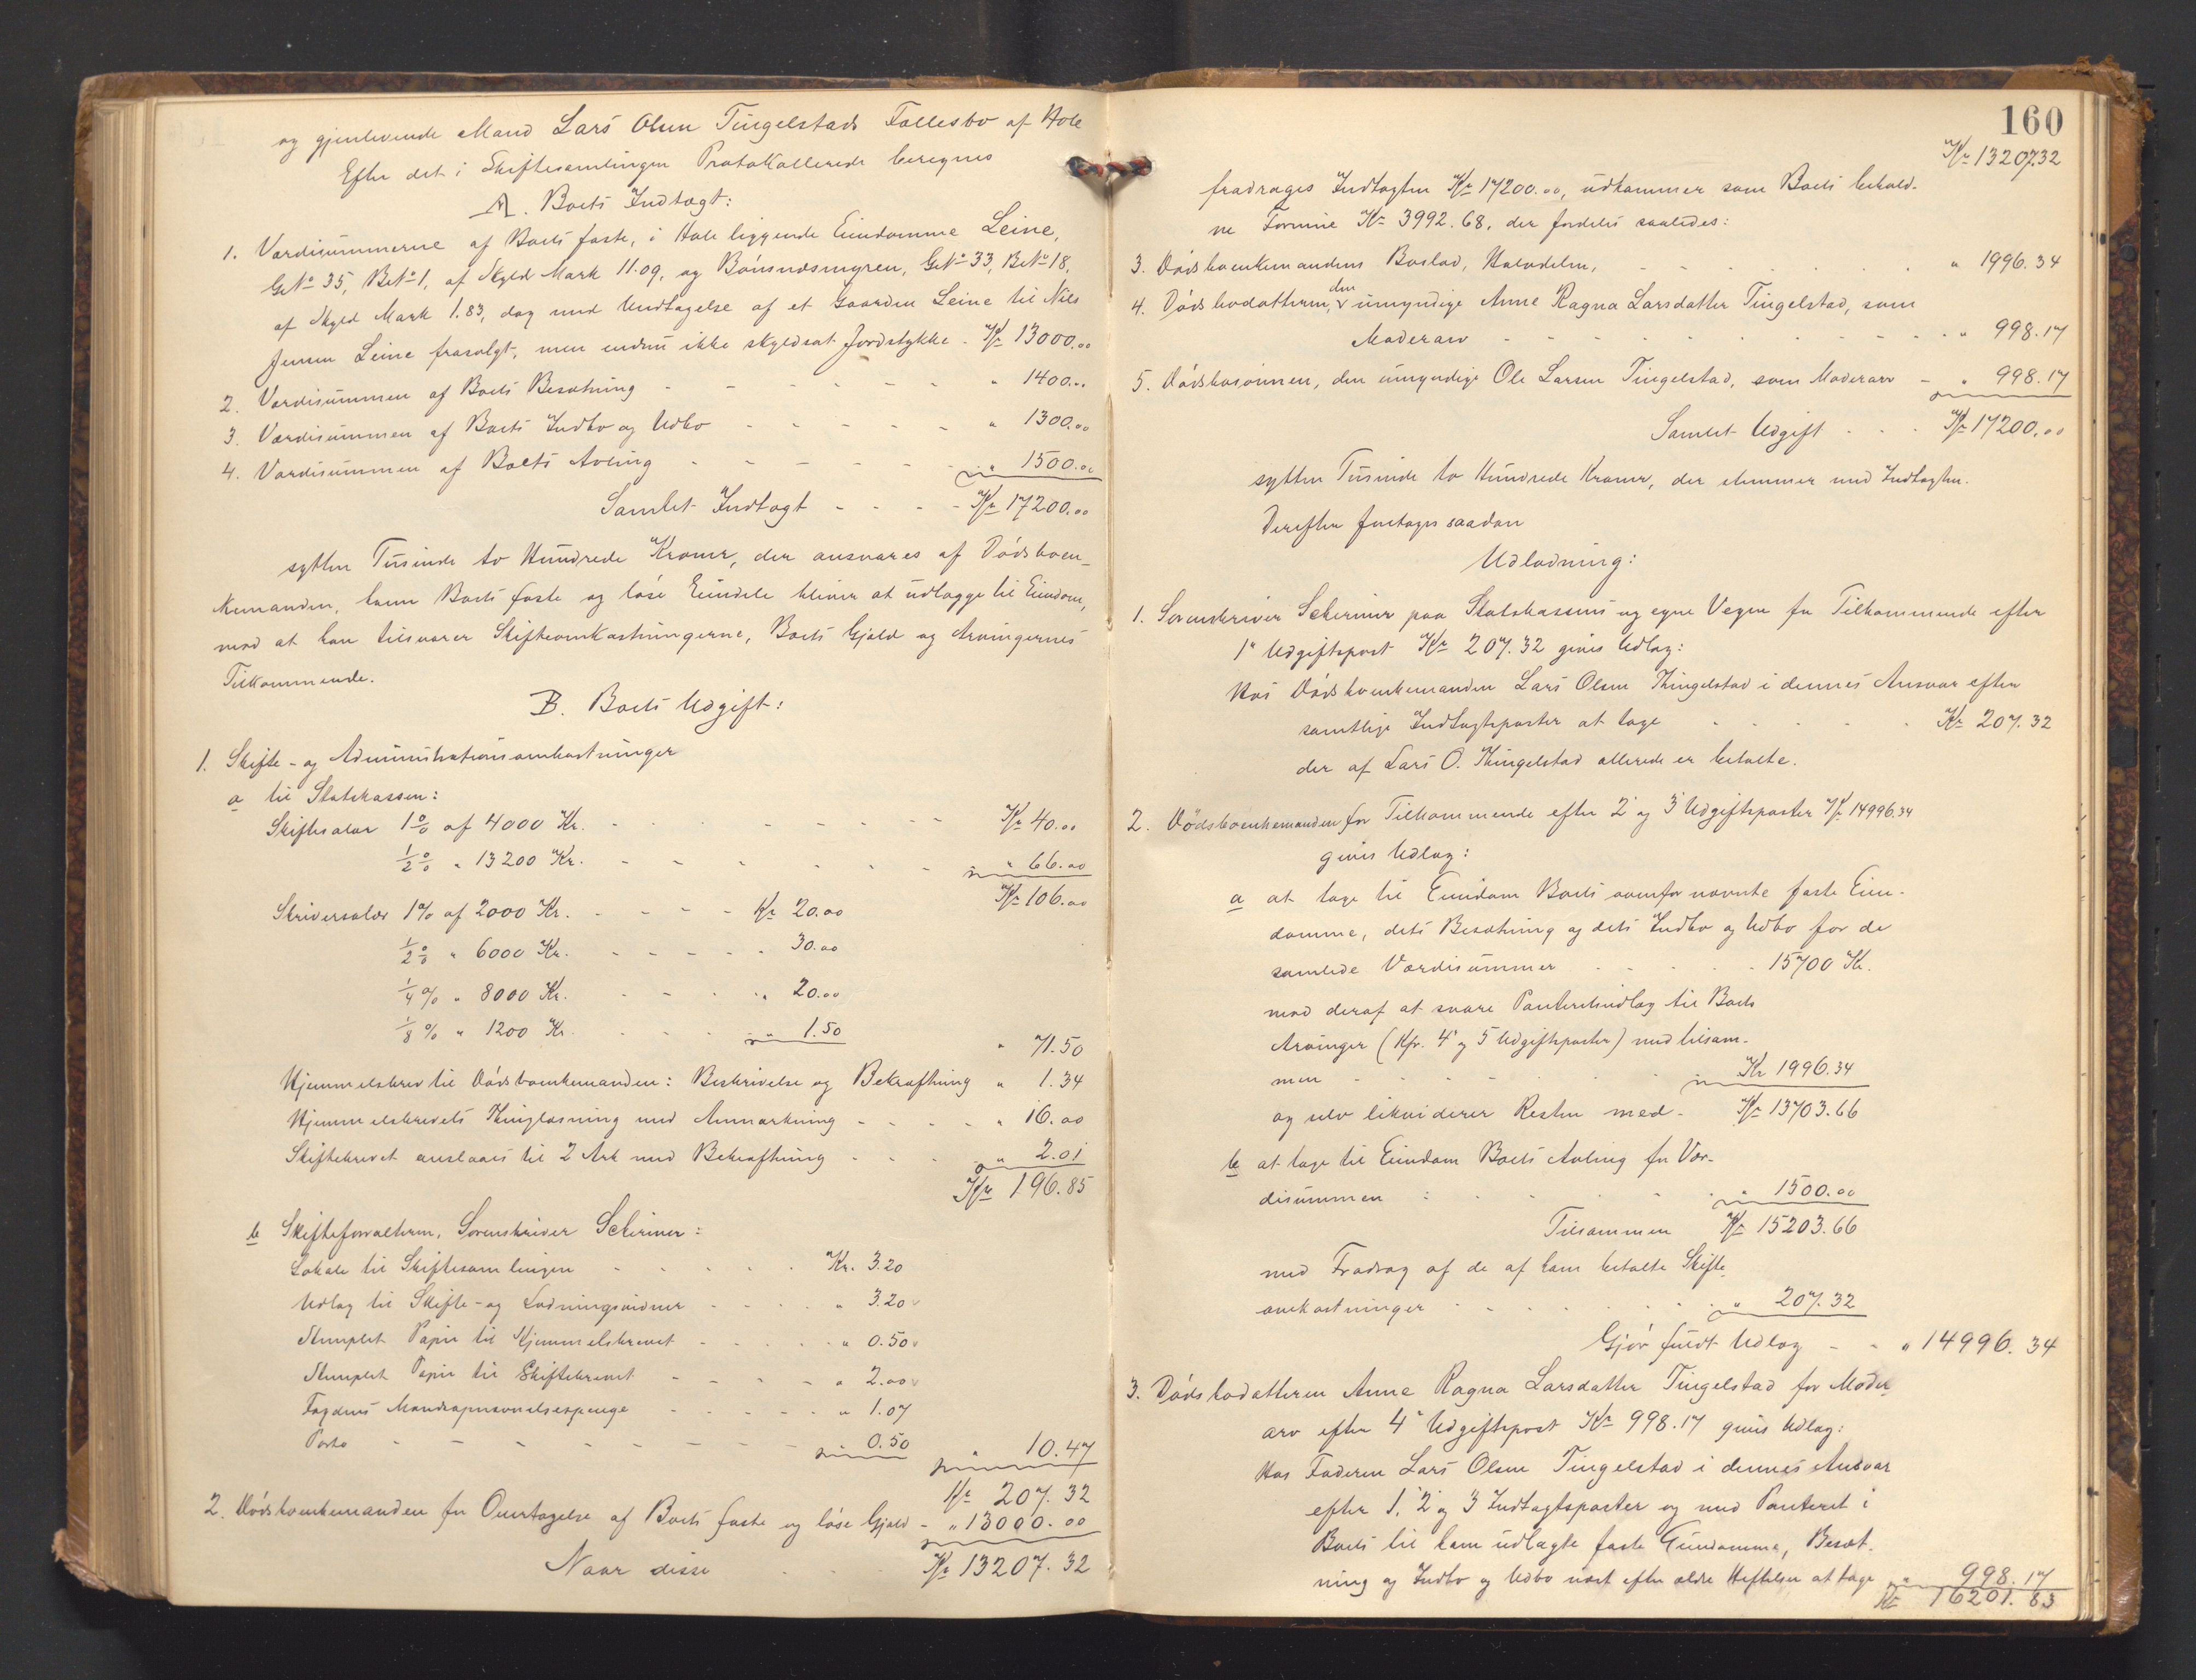 og gjenlevende Mand Lars Olsen Tingelstads Fællesbo af Hole
Efter det i Skiftesamlingen Protokollerede beregnes
A. Boets Indtægt:
1. Værdisummerne af Boets faste, i Hole liggende Eiendomme Leine,
GNo 35, BNo 1, af Skyld Mark 11.09, og Bönsnæsmyren, GNo 33, BNo 18,
af Skyld Mark 1.83, dog med Undtagelse af et Gaarden Leine til Nils
Jensen Leine frasolgt, men endnu ikke skyldsat Jordstykke - Kr 13000.00
2. Værdisummen af Boets Besætning - - - - - " 1400.00
3. Værdisummen af Boets Indbo og Udbo - - - - - " 1300.00
4. Værdisummen af Boets Avling - - - - - " 1500.00
Samlet Indtægt - - - - Kr 17200.00
sytten Tusinde to Hundrede Kroner, der ansvares af Dödsboen-
kemanden, hvem Boets faste og löse Eiendele bliver at udlægge til Eiendom,
mod at han tilsvarer Skifteomkostningerne, Boets Gjæld og Arvingernes
Tilkommende.
B. Boets Udgift:
1. Skifte- og Administrationsomkostninger
a til Statskassen:
Skiftesalær 1% af 4000 Kr. - - - - - Kr 40.00
1/2% " 13200 Kr. - - - - - " 66.00
Kr 106.00
Skriversalær 1% af 2000 Kr. - - - - Kr 20.00
1/2% " 6000 Kr. - - - - - 30.00
1/4% " 8000 Kr. - - - " 20.00
1/8% " 1200 Kr. - - - " 1.50
" 71.50
Hjemmelsbrev til Dödsboenkemanden: Beskrivelse og Bekræftning " 1.34
Hjemmelsbrevets Thinglæsning med Anmærkning - - - - " 16.00
Skiftebrevet anslaaes til 2 Ark med Bekræftning - - - " 2.01
Kr 196.85
b Skifteforvalteren, Sorenskriver Scheriver:
Lokale til Skiftesamlingen - - - - - Kr. 3.20
Udlæg til Skifte- og Lodningsvidner - - - - " 3.20
Stemplet Papir til Hjemmelsbrevet - - - - " 0.50
Stemplet Papir til Skiftebrevet - - - - " 2.00
Fogdens - - - - - " 1.07
Porto - - - - - - - - 0.50
" 10.47
Kr 207.32
2. Dödsboenkemanden for Overtagelse af Boets faste og löse Gjæld - " 13000.00
Naar disse - - Kr 13207.32
160
Kr 13207.32
fradrages Indtægten Kr 17200.00, udkommer som Boets behold-
ne Formue Kr 3992.68, der fordeles saaledes:
3. Dödsboenkemandens Boslod, Halvdelen, - - - - - " 1996.34
4. Dödsbodatteren, den umyndige Anne Ragna Larsdatter Tingelstad, som
Moderarv - - - - - - - - " 998.17
5. Dödsbosönnen, den umyndige Ole Larsen Tingelstad, som Moderarv - " 998.17
Samlet Udgift - - - Kr 17200.00
sytten Tusinde to Hundrede Kroner, der stemmer med Indtægten.
Derefter foretages saadan
Udlodning:
1. Sorenskriver Scheriver paa Statskassens og egne Vegne for Tilkommende efter
1ste Udgiftspost Kr 207.32 gives Udlæg:
Hos Dödsboenkemanden Lars Olsen Thingelstad i dennes Ansvar efter
samtlige Indtægtsposter at tage - - - - - Kr 207.32
der af Lars O. Thingelstad allerede er betalte.
2. Dödsboenkemanden for Tilkommende efter 2 og 3 Udgiftsposter Kr 14996.34
gives Udlæg:
a at tage til Eiendom Boets ovenfor nævnte faste Eien-
domme, dets Besætning og dets Indbo og Udbo for de
samlede Værdisummer - - - - 15700 Kr.
mod deraf at svare Panteretsudlæg til Boets
Arvinger (Kfr. 4 og 5 Udgiftsposter) med tilsam-
men - - - - - Kr 1996.34
og selv likviderer Resten med - Kr 13703.66
b at tage til Eiendom Boets Avling for Vær-
disummen - - - - - " 1500.00
Tilsammen Kr 15203.66
med Fradrag af de af ham betalte Skifte-
omkostninger - - - - - " 207.32
Gjör fuldt Udlæg - - " 14996.34
3. Dödsbodatteren Anne Ragna Larsdatter Tingelstad for Moder-
arv efter 4 Udgiftspost Kr 998.17 gives Udlæg:
Hos Faderen Lars Olsen Tingelstad i dennes Ansvar
efter 1, 2 og 3 Indtægtsposter og med Panteret i
Boets til ham udlagte faste Eiendomme, Besæt-
ning og Indbo og Udbo næst efter ældre Heftelser at tage " 998.17
Kr 16201.83